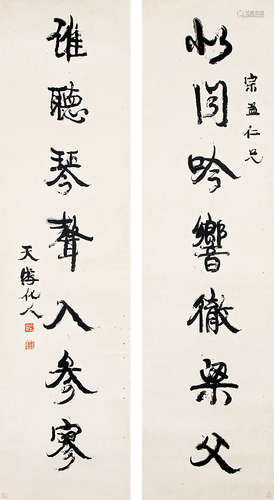 宗益仁兄
似聞吟響徹梁父
誰聽琴聲入參寥
天游化人